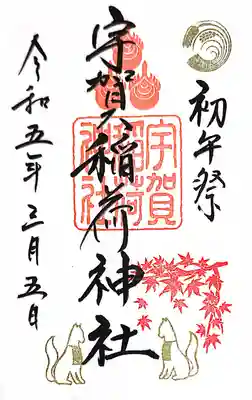 初午祭
宇賀稲荷神社
宇賀
稲荷
神社
令和五年三月五日